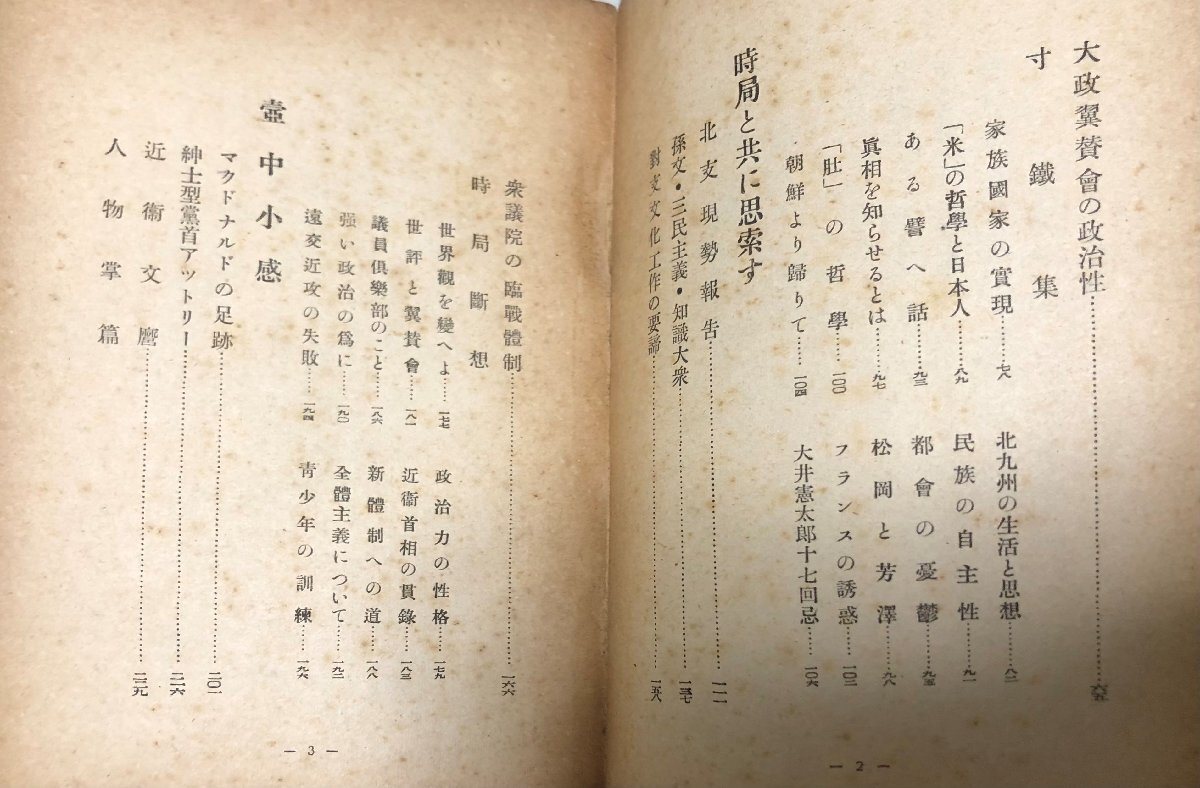 大政翼賛會の政治性……六五
寸鐵集
家族國家の實現……七八
北九州の生活と思想……八二
「米」の哲學と日本人……八九
民族の自主性……九一
ある譬へ話……九三
都會の憂鬱……九五
眞相を知らせるとは……九七
松岡と芳澤……九八
「肚」の哲學……一〇〇
フランスの誘惑……一〇二
朝鮮より歸りて……一〇四
大井憲太郎十七回忌……一〇六
時局と共に思索す
北支現勢報告……一一一
孫文・三民主義・知識大衆……一三七
對支文化工作の要諦……一五八
― 2 ―
衆議院の臨戰體制……一六六
時局斷想
世界觀を變へよ……一七七
政治力の性格……一七九
世評と翼賛會……一八一
近衞首相の貫錄……一八三
議員倶樂部のこと……一八六
新體制への道……一八八
强い政治の爲に……一九〇
全體主義について……一九二
遠交近攻の失敗……一九四
靑少年の訓練……一九六
壺中小感
マクドナルドの足跡……二〇一
紳士型黨首アットリー……二一六
近衞文麿……二二九
人物掌篇
― 3 ―